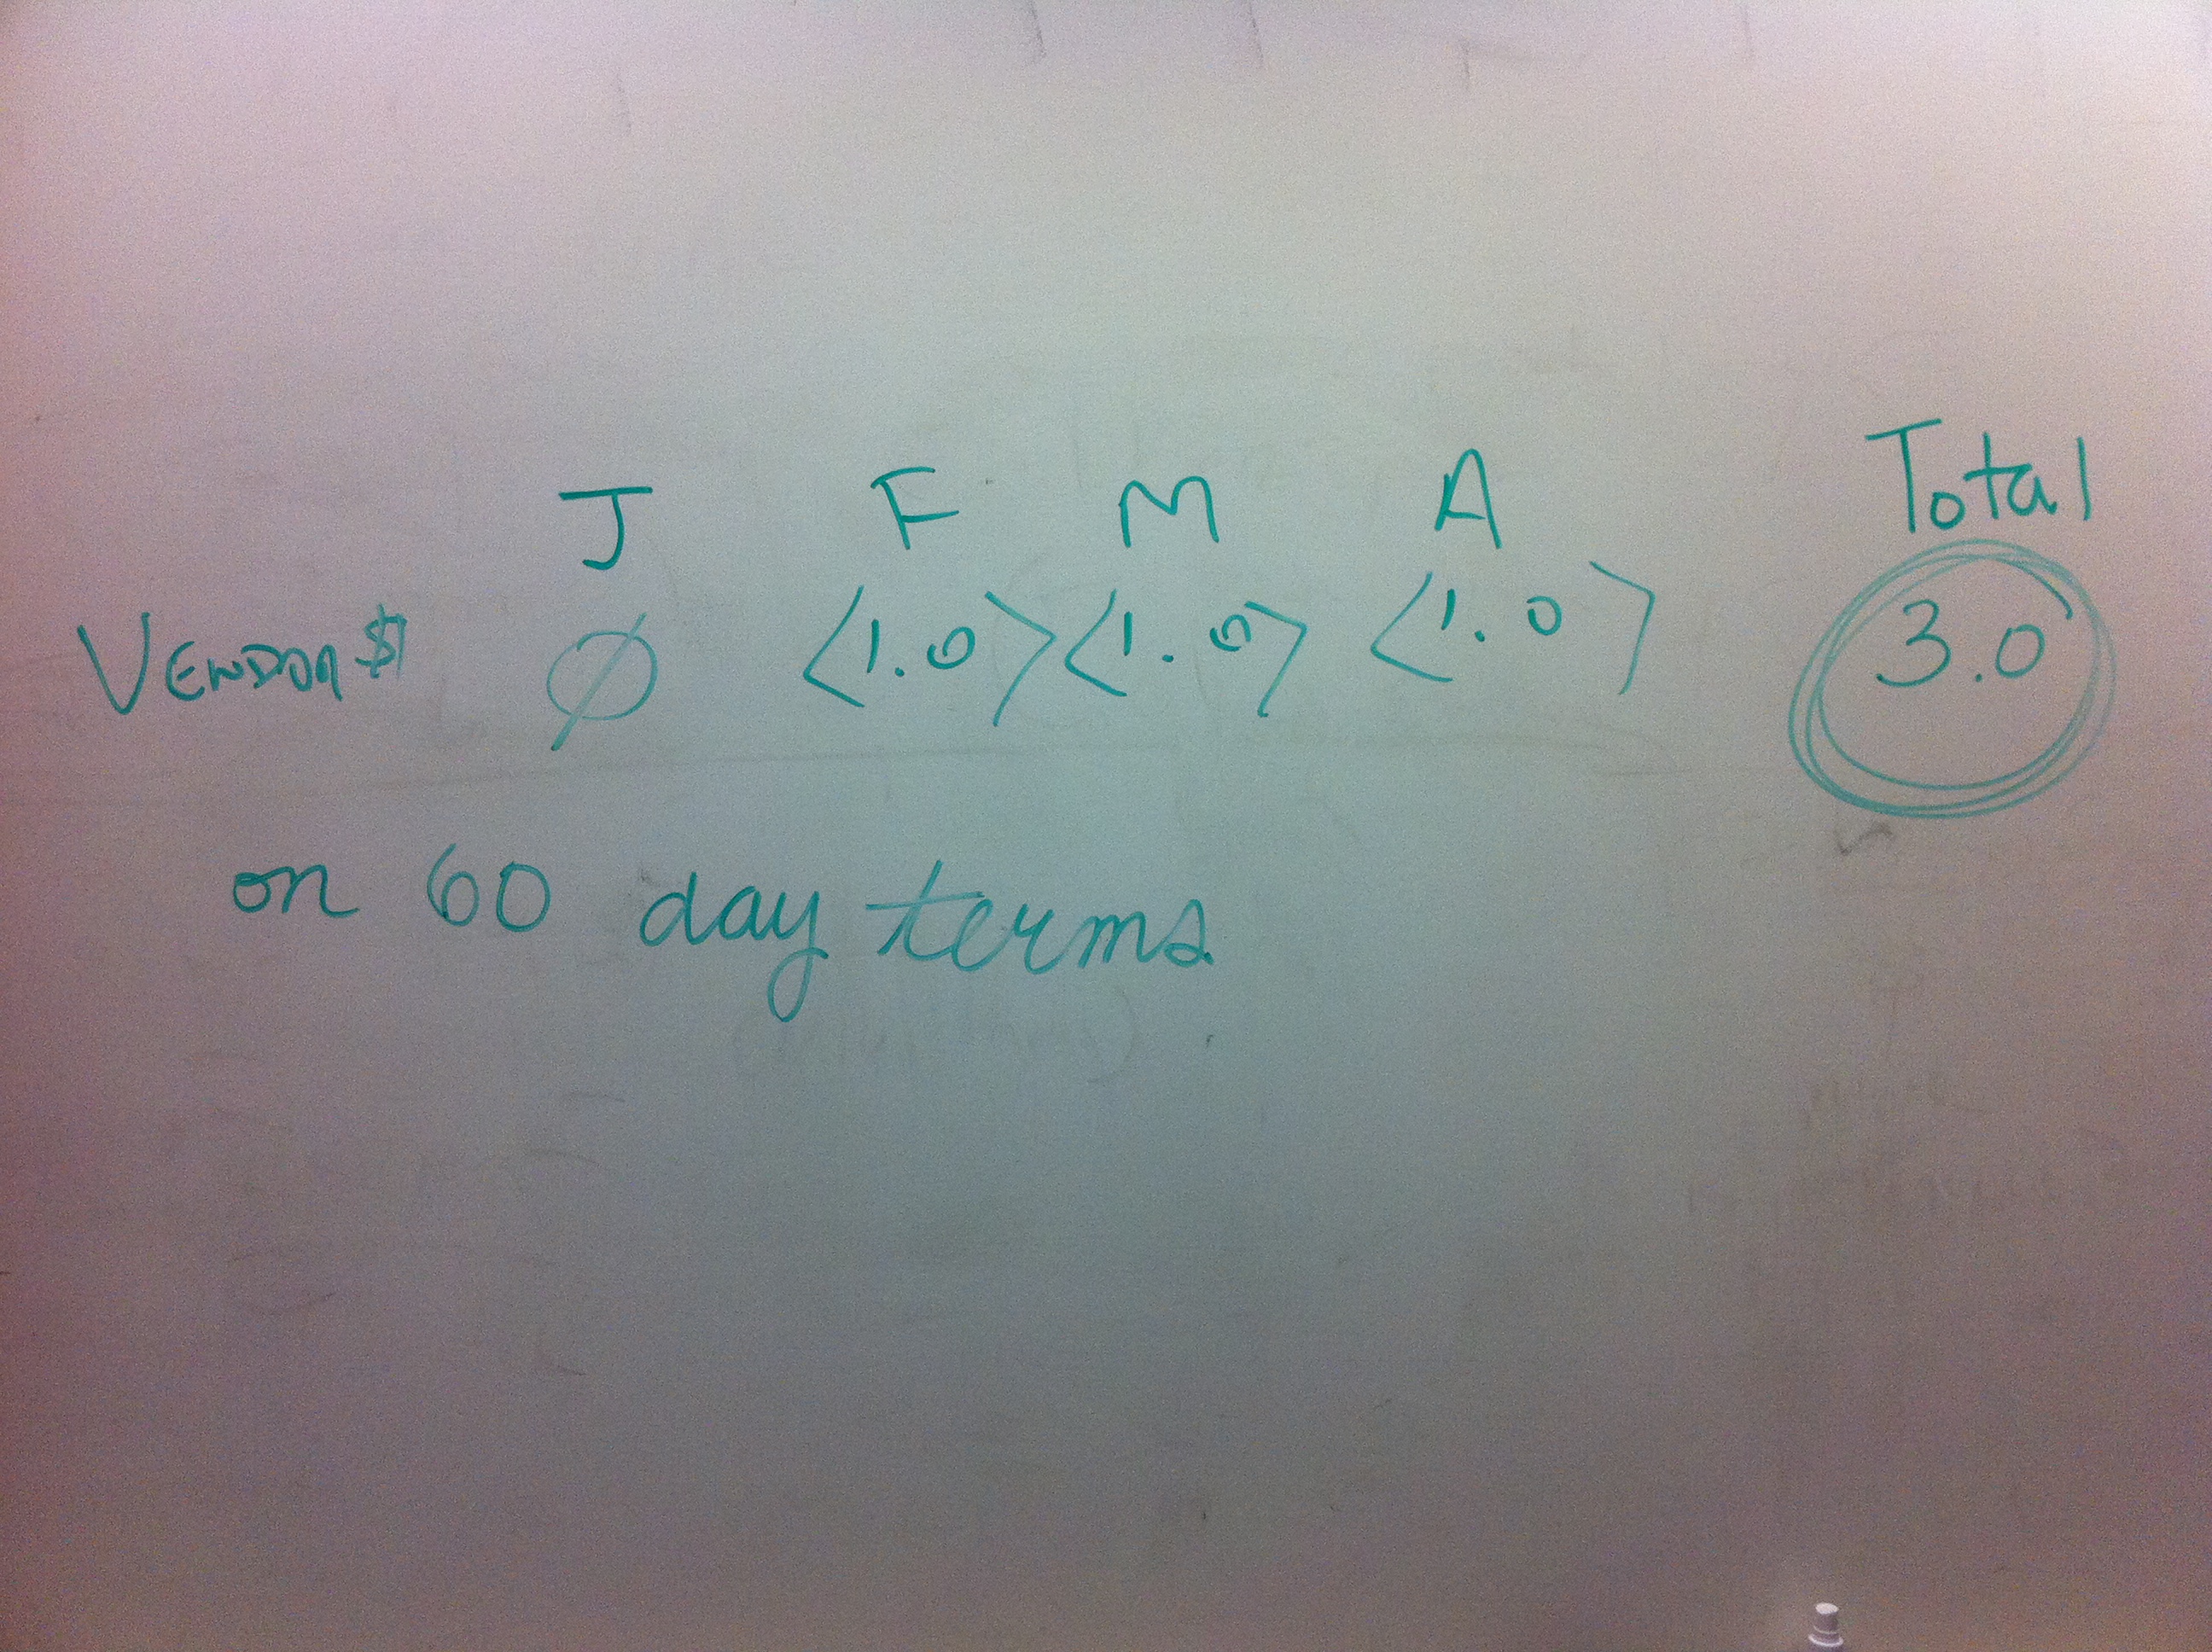 J F M A Total
VENDOR $ Ø <1.0> <1.0> <1.0> 3.0
on 60 day terms